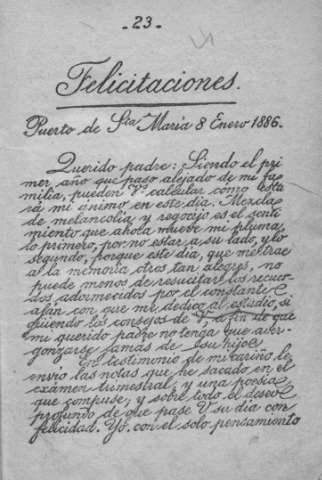 - 23 -
Felicitaciones.
Puerto de Sta María 8 Enero 1886.
Querido padre: Siendo el pri
mer año que paso alejado de mi fa
milia, pueden Vs calcular como esta
rá mi ánimo en este día. Mezcla
de melancolía y regocijo es el senti
miento que ahora mueve mi pluma,
lo primero, por no estar a su lado, y lo
segundo, porque este día, que me trae
a la memoria otros tan alegres, no
puede menos de resucitar los recuer
dos adormecidos por el constante
afán con que me dedico al estudio, si
guiendo los consejos de V, a fin de que
mi querido padre no tenga que aver-
gonzarse jamás de su hijo.
En testimonio de mi cariño le
envío las notas que he sacado en el
exámen trimestral, y una poesía
que compuse, y sobre todo el deseo
profundo de que pase V su día con
felicidad. Yo, con el solo pensamiento